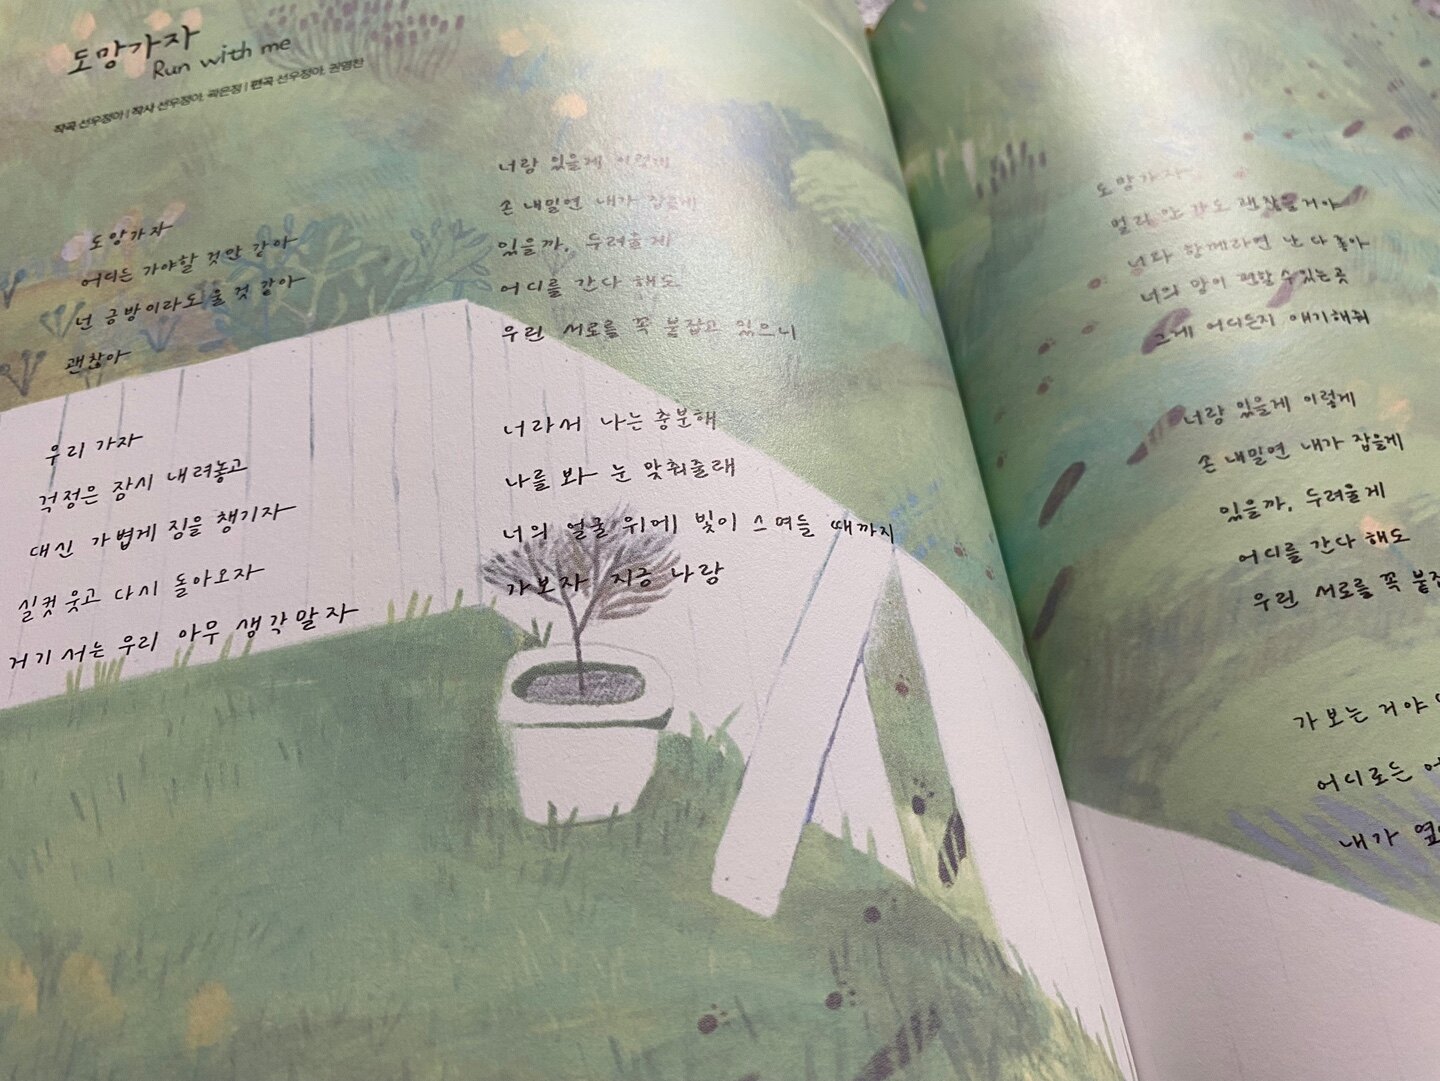 도망가자
Run with me
작곡 선우정아 | 작사 선우정아, 곽은정 | 편곡 선우정아, 권영찬
도망가자
어디든 가야할 것만 같아
넌 금방이라도 울 것 같아
괜찮아
우리 가자
걱정은 잠시 내려놓고
대신 가볍게 짐을 챙기자
실컷 웃고 다시 돌아오자
거기서는 우리 아무 생각말자
너랑 있을게 이렇게
손 내밀면 내가 잡을게
있을까, 두려울 게
어디를 간다 해도
우린 서로를 꼭 붙잡고 있으니
너라서 나는 충분해
나를 봐 눈 맞춰줄래
너의 얼굴 위에 빛이 스며들 때까지
가보자 지금 나랑
도망가자
멀리 안 가도 괜찮을거야
너와 함께라면 난 다 좋아
너의 맘이 편할 수 있는 곳
그게 어디든지 얘기해줘
너랑 있을게 이렇게
손 내밀면 내가 잡을게
있을까, 두려울게
어디를 간다 해도
우린 서로를 꼭 붙잡
가보는 거야
어디로든
내가